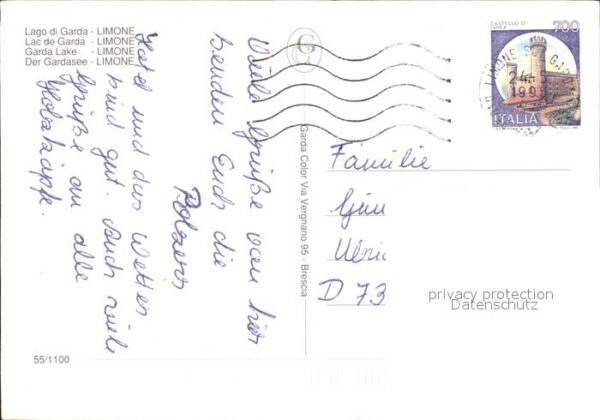 Lago di Garda - LIMONE
Lac de Garda - LIMONE
Garda Lake - LIMONE
Der Gardasee - LIMONE
Viele Grüße von hier
senden Euch die
Hotel und das Wetter
sind gut. Auch viele
Grüße an alle
Holzköpfe.
Garda Color Via Vergnano 95 - Brescia
CASTELLO DI
IVREA
700
ITALIA
Familie
D 73
privacy protection
Datenschutz
55/1100